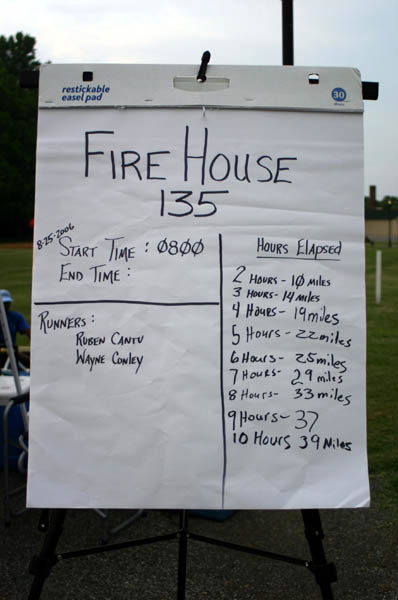 restickable
easel pad
30
FIRE HOUSE
135
8-25-2006
START TIME : 0800
END TIME :
RUNNERS :
RUBEN CANTU
WAYNE CONLEY
HOURS ELAPSED
2 HOURS - 10 MILES
3 HOURS - 14 MILES
4 HOURS - 19 miles
5 HOURS - 22 miles
6 HOURS - 25 miles
7 HOURS - 29 miles
8 HOURS - 33 miles
9 HOURS - 37
10 HOURS 39 MILES